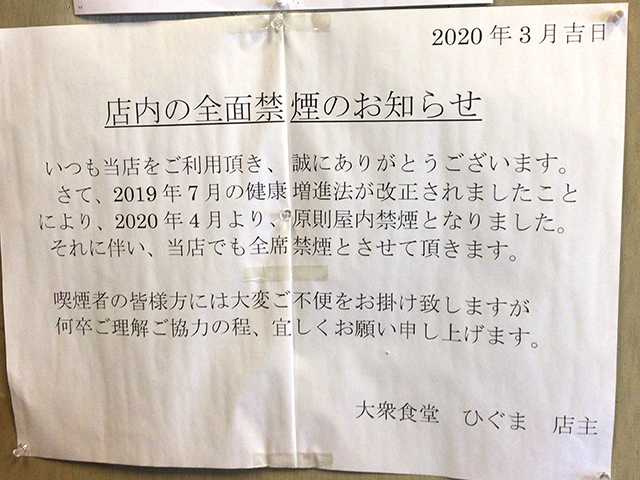 2020年3月吉日
店内の全面禁煙のお知らせ
いつも当店をご利用頂き、誠にありがとうございます。
さて、2019年7月の健康増進法が改正されましたこと
により、2020年4月より、原則屋内禁煙となりました。
それに伴い、当店でも全席禁煙とさせて頂きます。
喫煙者の皆様方には大変ご不便をお掛け致しますが
何卒ご理解ご協力の程、宜しくお願い申し上げます。
大衆食堂　ひぐま　店主